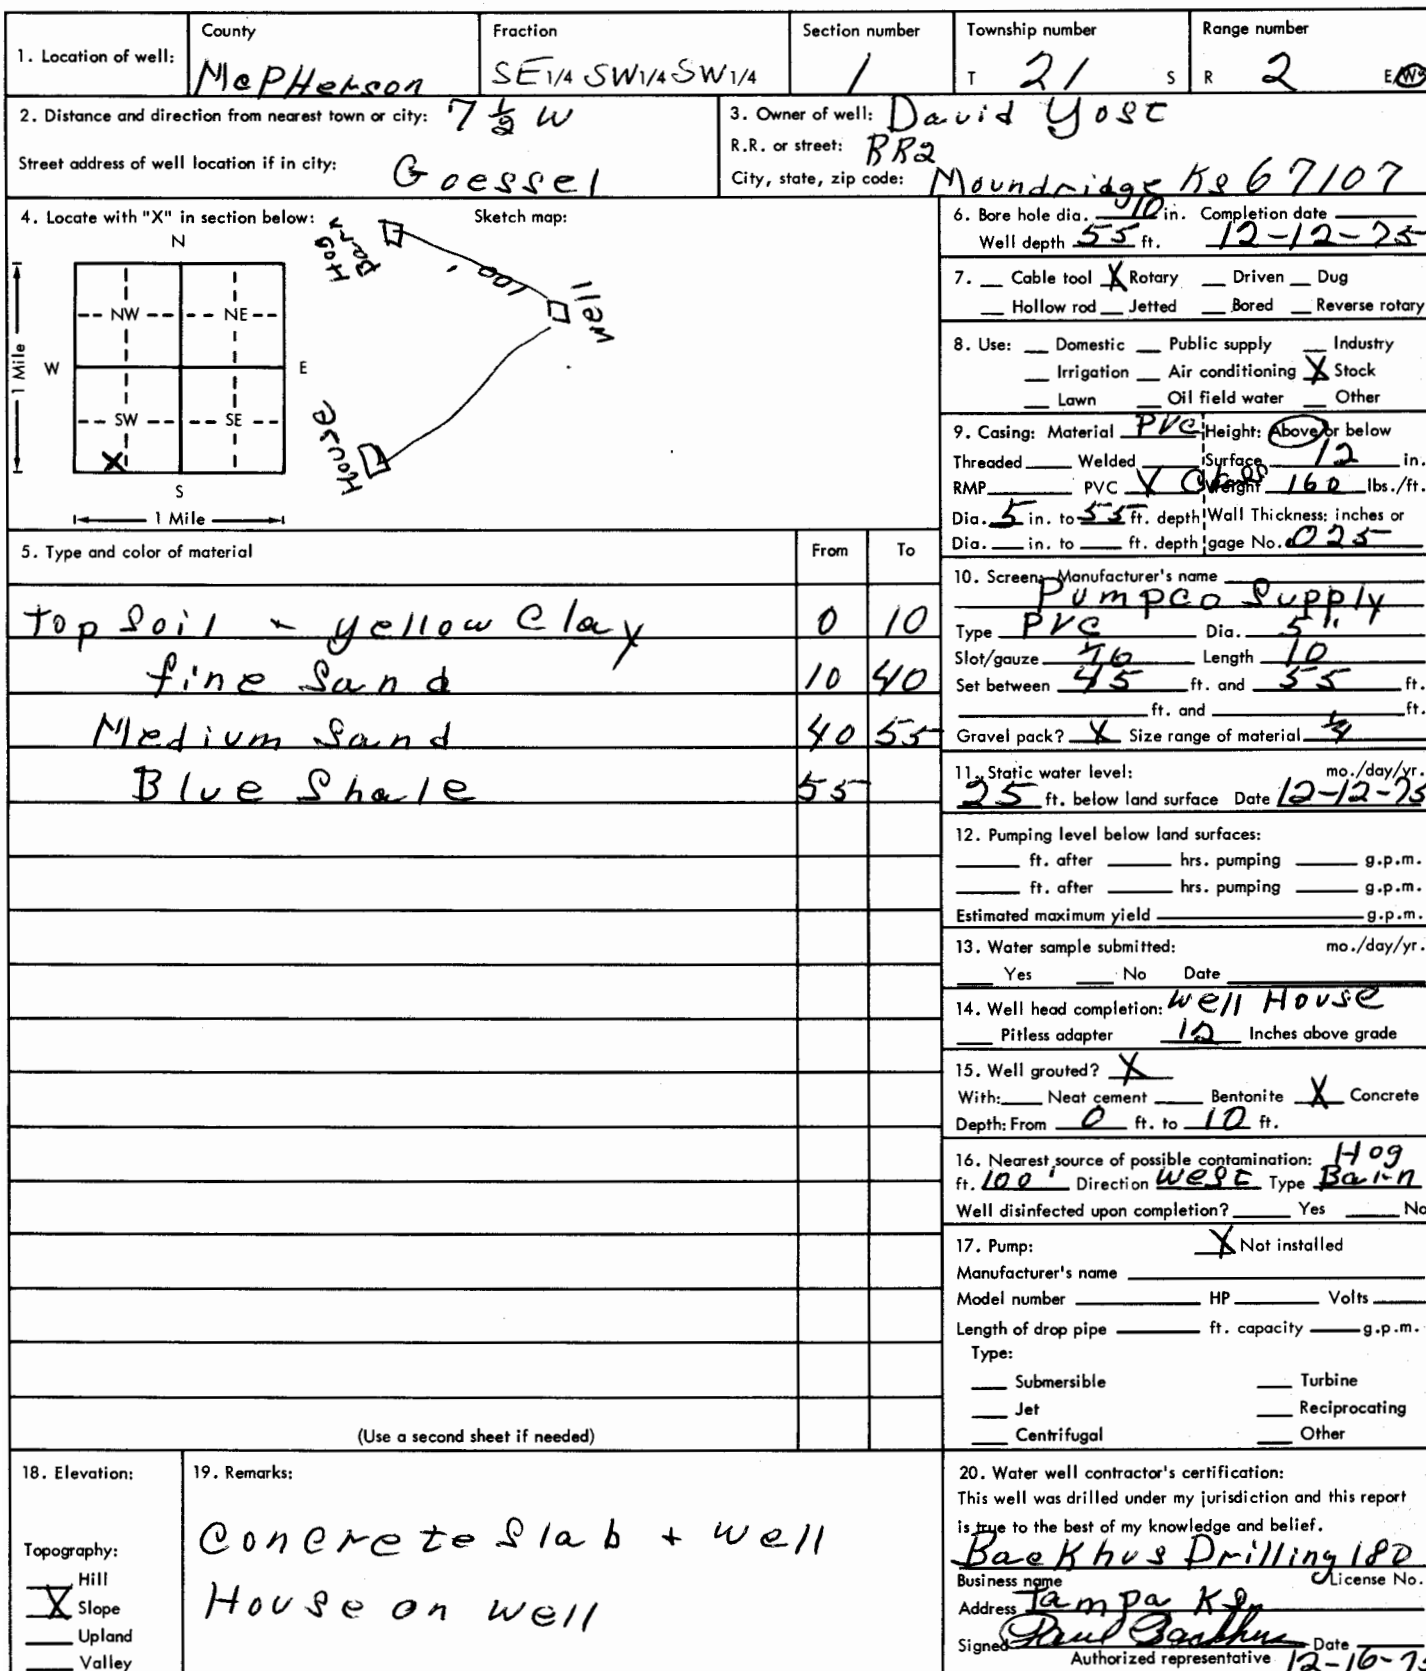 1. Location of well: County McPHerson Fraction SE 1/4 SW 1/4 SW 1/4 Section number 1 Township number T 21 S Range number R 2 E/W
2. Distance and direction from nearest town or city: 7 1/2 W
Street address of well location if in city: Goessel
3. Owner of well: David Yost
R.R. or street: RR2
City, state, zip code: Moundridge Ks 67107
4. Locate with "X" in section below: Sketch map:
N
NW NE
W E
SW SE
X
S
1 Mile
1 Mile
Hog Barn
100'
Well
House
5. Type and color of material From To
Top Soil - yellow Clay 0 10
fine Sand 10 40
Medium Sand 40 55
Blue Shale 55
(Use a second sheet if needed)
6. Bore hole dia. 10 in. Completion date
Well depth 55 ft. 12-12-75
7. __ Cable tool X Rotary __ Driven __ Dug
__ Hollow rod __ Jetted __ Bored __ Reverse rotary
8. Use: __ Domestic __ Public supply __ Industry
__ Irrigation __ Air conditioning X Stock
__ Lawn __ Oil field water __ Other
9. Casing: Material PVC Height: Above or below
Threaded __ Welded __ Surface 12 in.
RMP __ PVC X Class Weight 160 lbs./ft.
Dia. 5 in. to 55 ft. depth Wall Thickness: inches or
Dia. __ in. to __ ft. depth gage No. .025
10. Screen: Manufacturer's name
Pumpco Supply
Type PVC Dia. 5"
Slot/gauze Length 10
Set between 45 ft. and 55 ft.
__ ft. and __ ft.
Gravel pack? X Size range of material
11. Static water level: mo./day/yr.
25 ft. below land surface Date 12-12-75
12. Pumping level below land surfaces:
__ ft. after __ hrs. pumping __ g.p.m.
__ ft. after __ hrs. pumping __ g.p.m.
Estimated maximum yield __ g.p.m.
13. Water sample submitted: mo./day/yr.
__ Yes __ No Date __
14. Well head completion: Well House
__ Pitless adapter 12 Inches above grade
15. Well grouted? X
With: __ Neat cement __ Bentonite X Concrete
Depth: From 0 ft. to 10 ft.
16. Nearest source of possible contamination: Hog
ft. 100' Direction West Type Barn
Well disinfected upon completion? __ Yes __ No
17. Pump: X Not installed
Manufacturer's name __
Model number __ HP __ Volts __
Length of drop pipe __ ft. capacity __ g.p.m.
Type:
__ Submersible __ Turbine
__ Jet __ Reciprocating
__ Centrifugal __ Other
18. Elevation:
Topography:
__ Hill
X Slope
__ Upland
__ Valley
19. Remarks:
Concrete Slab + Well
House on Well
20. Water well contractor's certification:
This well was drilled under my jurisdiction and this report
is true to the best of my knowledge and belief.
Backhus Drilling 180
Business name License No.
Address Tampa Ks.
Signed Paul Backhus Date
Authorized representative 12-16-75